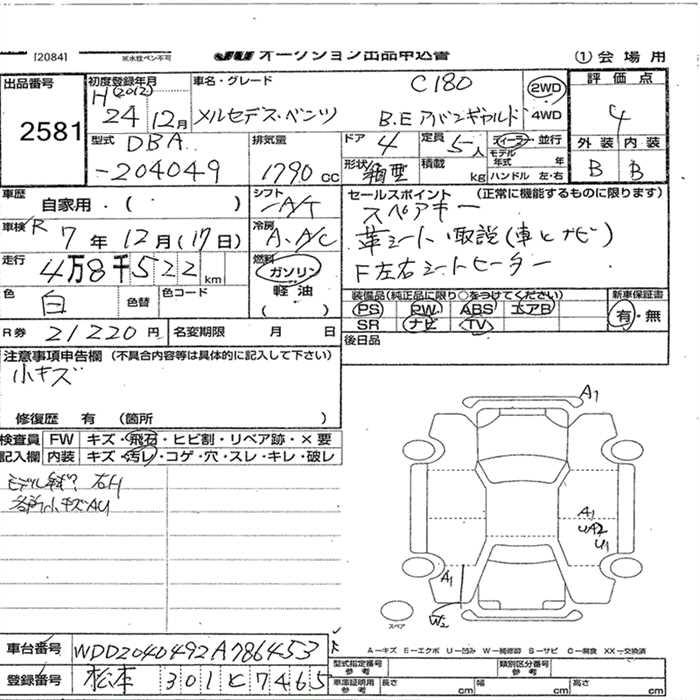 [2084] ※水性ペン不可 JU オークション出品申込書 ① 会場用
出品番号 2581
初度登録年月 H(2012) 24年12月
車名・グレード C180
メルセデス・ベンツ B.E アバンギャルド
2WD 4WD
評価点 4
外装 内装
B B
型式 DBA
-204049
排気量 1790 cc
ドア 4
定員 5人
ディーラー・並行
モデル年式 年
形状 箱型
積載 kg
ハンドル 左・右
車歴 自家用・( )
シフト AT
セールスポイント (正常に機能するものに限ります)
スペアキー
革シート 取説(車とナビ)
F左右シートヒーター
車検 R 7年12月(17日)
冷房 A.A/C
走行 4万8千522 km
燃料 ガソリン
軽油
( )
色 白
色替
色コード
装備品(純正品に限り○をつけてください) 新車保証書
PS PW ABS エアB 有・無
SR ナビ TV
R券 21220円
名変期限 月 日
後日品
注意事項申告欄 (不具合内容等は具体的に記入して下さい)
小キズ
修復歴 有 (箇所 )
検査員 FW キズ・飛石・ヒビ割・リペア跡・×要
記入欄 内装 キズ・汚レ・コゲ・穴・スレ・キレ・破レ
右H
各所小キズAU
A1
A1
UA2
U1
A1
W2
スペア
A-キズ E-エクボ U-凹み W-補修跡 S-サビ C-腐食 XX-交換済
車台番号 WDD2040492A786453
登録番号 松本 301 と 7465
型式指定番号 参考
類別区分番号 参考
車庫証明用 参考
長さ cm
幅 cm
高さ cm